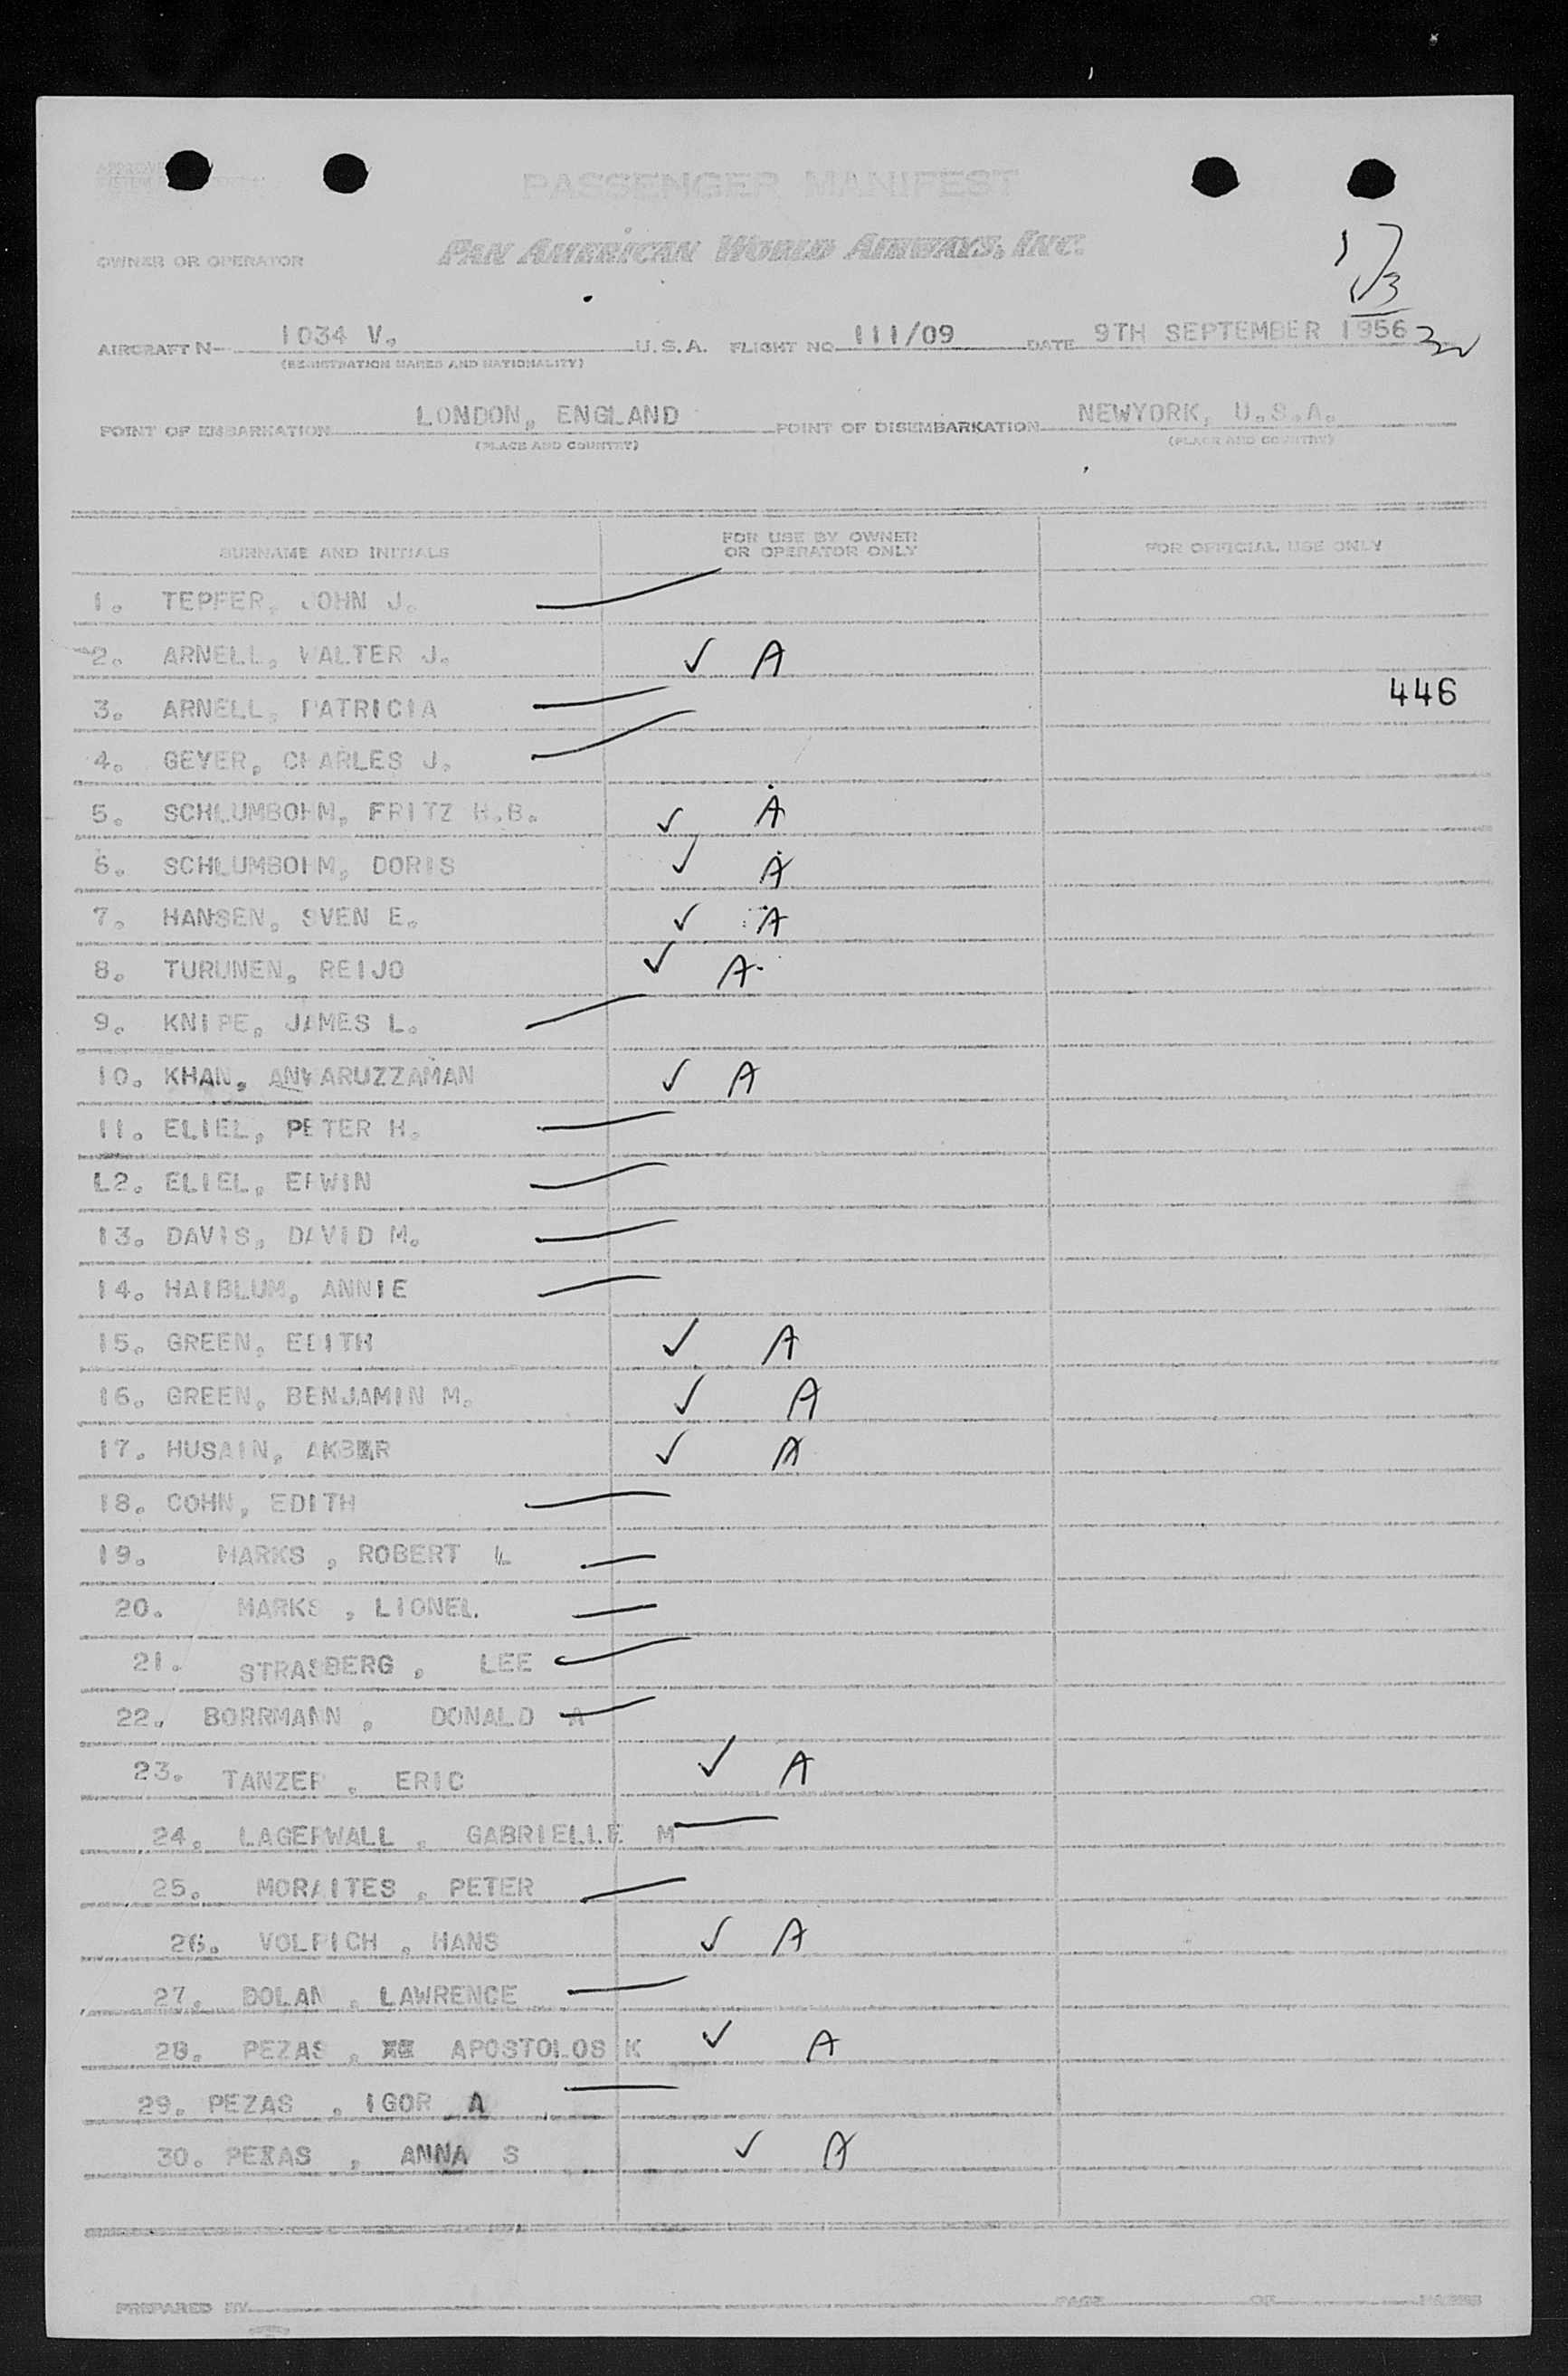 PASSENGER MANIFEST
OWNER OR OPERATOR PAN AMERICAN WORLD AIRWAYS, INC.
AIRCRAFT N 1034 V. U.S.A. FLIGHT NO 111/09 DATE 9TH SEPTEMBER 1956
(REGISTRATION MARKS AND NATIONALITY)
POINT OF EMBARKATION LONDON, ENGLAND POINT OF DISEMBARKATION NEWYORK, U.S.A.
(PLACE AND COUNTRY) (PLACE AND COUNTRY)
SURNAME AND INITIALS FOR USE BY OWNER OR OPERATOR ONLY FOR OFFICIAL USE ONLY
1. TEPFER, JOHN J.
2. ARNELL, WALTER J. ✓ A
3. ARNELL, PATRICIA 446
4. GEYER, CHARLES J.
5. SCHLUMBOHM, FRITZ H.B. ✓ A
6. SCHLUMBOHM, DORIS ✓ A
7. HANSEN, SVEN E. ✓ A
8. TURUNEN, REIJO ✓ A
9. KNIPE, JAMES L.
10. KHAN, ANWARUZZAMAN ✓ A
11. ELIEL, PETER H.
12. ELIEL, ERWIN
13. DAVIS, DAVID M.
14. HAIBLUM, ANNIE
15. GREEN, EDITH ✓ A
16. GREEN, BENJAMIN M. ✓ A
17. HUSAIN, AKBAR ✓ A
18. COHN, EDITH
19. MARKS , ROBERT L
20. MARKS , LIONEL
21. STRASBERG , LEE
22. BORRMANN , DONALD A
23. TANZER , ERIC ✓ A
24. LAGERWALL , GABRIELLE M
25. MORAITES , PETER
26. VOLPICH , HANS ✓ A
27. DOLAN , LAWRENCE
28. PEZAS , APOSTOLOS K ✓ A
29. PEZAS , IGOR A
30. PEZAS , ANNA S ✓ A
PREPARED BY PAGE OF PAGES